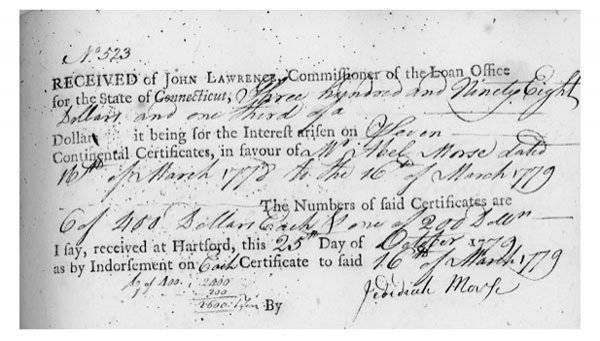 No 523
RECEIVED of JOHN LAWRENCE, Commissioner of the Loan Office
for the State of Connecticut, Three hundred and Ninety Eight
Dollars and one third of a
Dollar it being for the Interest arisen on Seven
Continental Certificates, in favour of Mr. Abel Morse dated
16th of March 1778 to the 16th of March 1779
The Numbers of said Certificates are
6 of 400 Dollars Each & one of 200 Dollrs
I say, received at Hartford, this 25th Day of October 1779
as by Indorsement on Each Certificate to said 16th of March 1779
6 of 400 : 2400
1 200
2600
By Jedidiah Morse